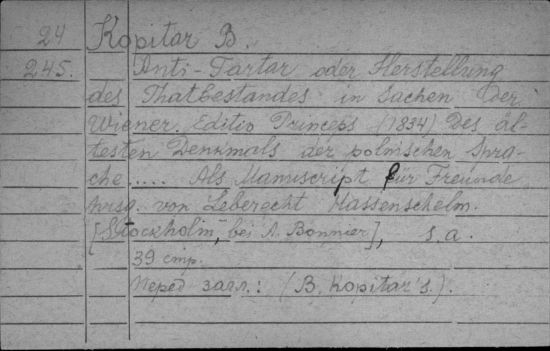 24 Kopitar B.
245. Anti-Tartar oder Herstellung
des Thatbestandes in Sachen der
Wiener. Editio Princeps (1834) Des äl-
testen Denkmals der polnischen Spra-
che ..... Als Manuscript für Freunde
hrsg. von Leberecht Hassenschelm.
[Stockholm, bei A. Bonnier], s.a.
39 стр.
Перед загл.: (B. Kopitar's.).